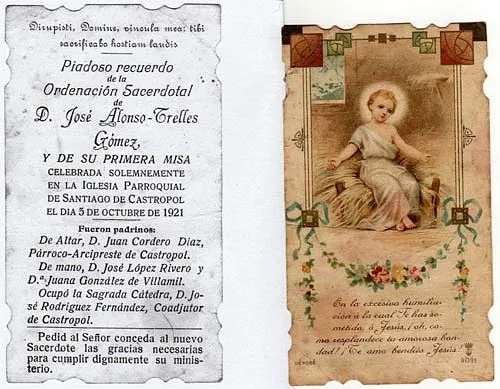 Dirupisti, Domine, vincula mea: tibi
sacrificabo hostiam laudis
Piadoso recuerdo
de la
Ordenación Sacerdotal
de
D. José Alonso-Trelles
Gómez,
Y DE SU PRIMERA MISA
CELEBRADA SOLEMNEMENTE
EN LA IGLESIA PARROQUIAL
DE SANTIAGO DE CASTROPOL
EL DIA 5 DE OCTUBRE DE 1921
Fueron padrinos:
De Altar, D. Juan Cordero Díaz,
Párroco-Arcipreste de Castropol.
De mano, D. José López Rivero y
D.ª Juana González de Villamil.
Ocupó la Sagrada Cátedra, D. Jo-
sé Rodríguez Fernández, Coadjutor
de Castropol.
Pedid al Señor conceda al nuevo
Sacerdote las gracias necesarias
para cumplir dignamente su minis-
terio.
En la excesiva humilia-
ción á la cual Te has so-
metido, ó Jesús, ¡oh, co-
mo resplandece tu amorosa bon-
dad! ¡Te amo bendito Jesús!
DÉPOSÉ